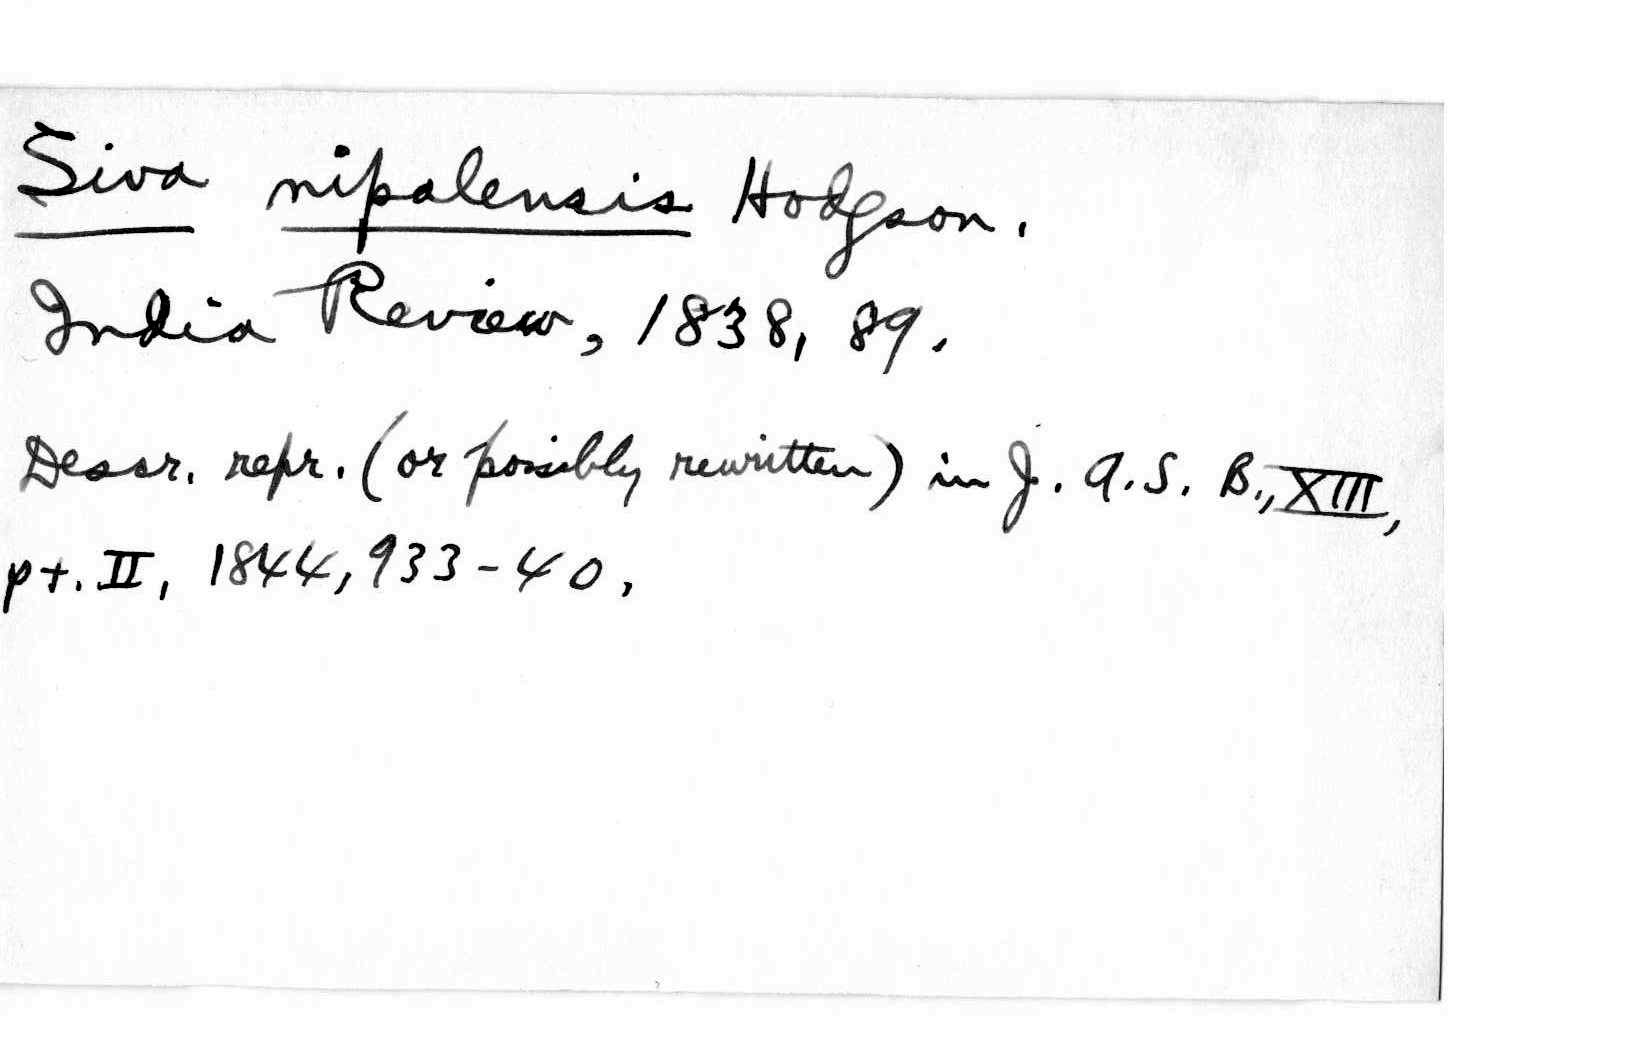 Siva nipalensis Hodgson.
India Review, 1838, 89.
Descr. repr. (or possibly rewritten) in J. A. S. B., XIII,
pt. II, 1844, 933-40.